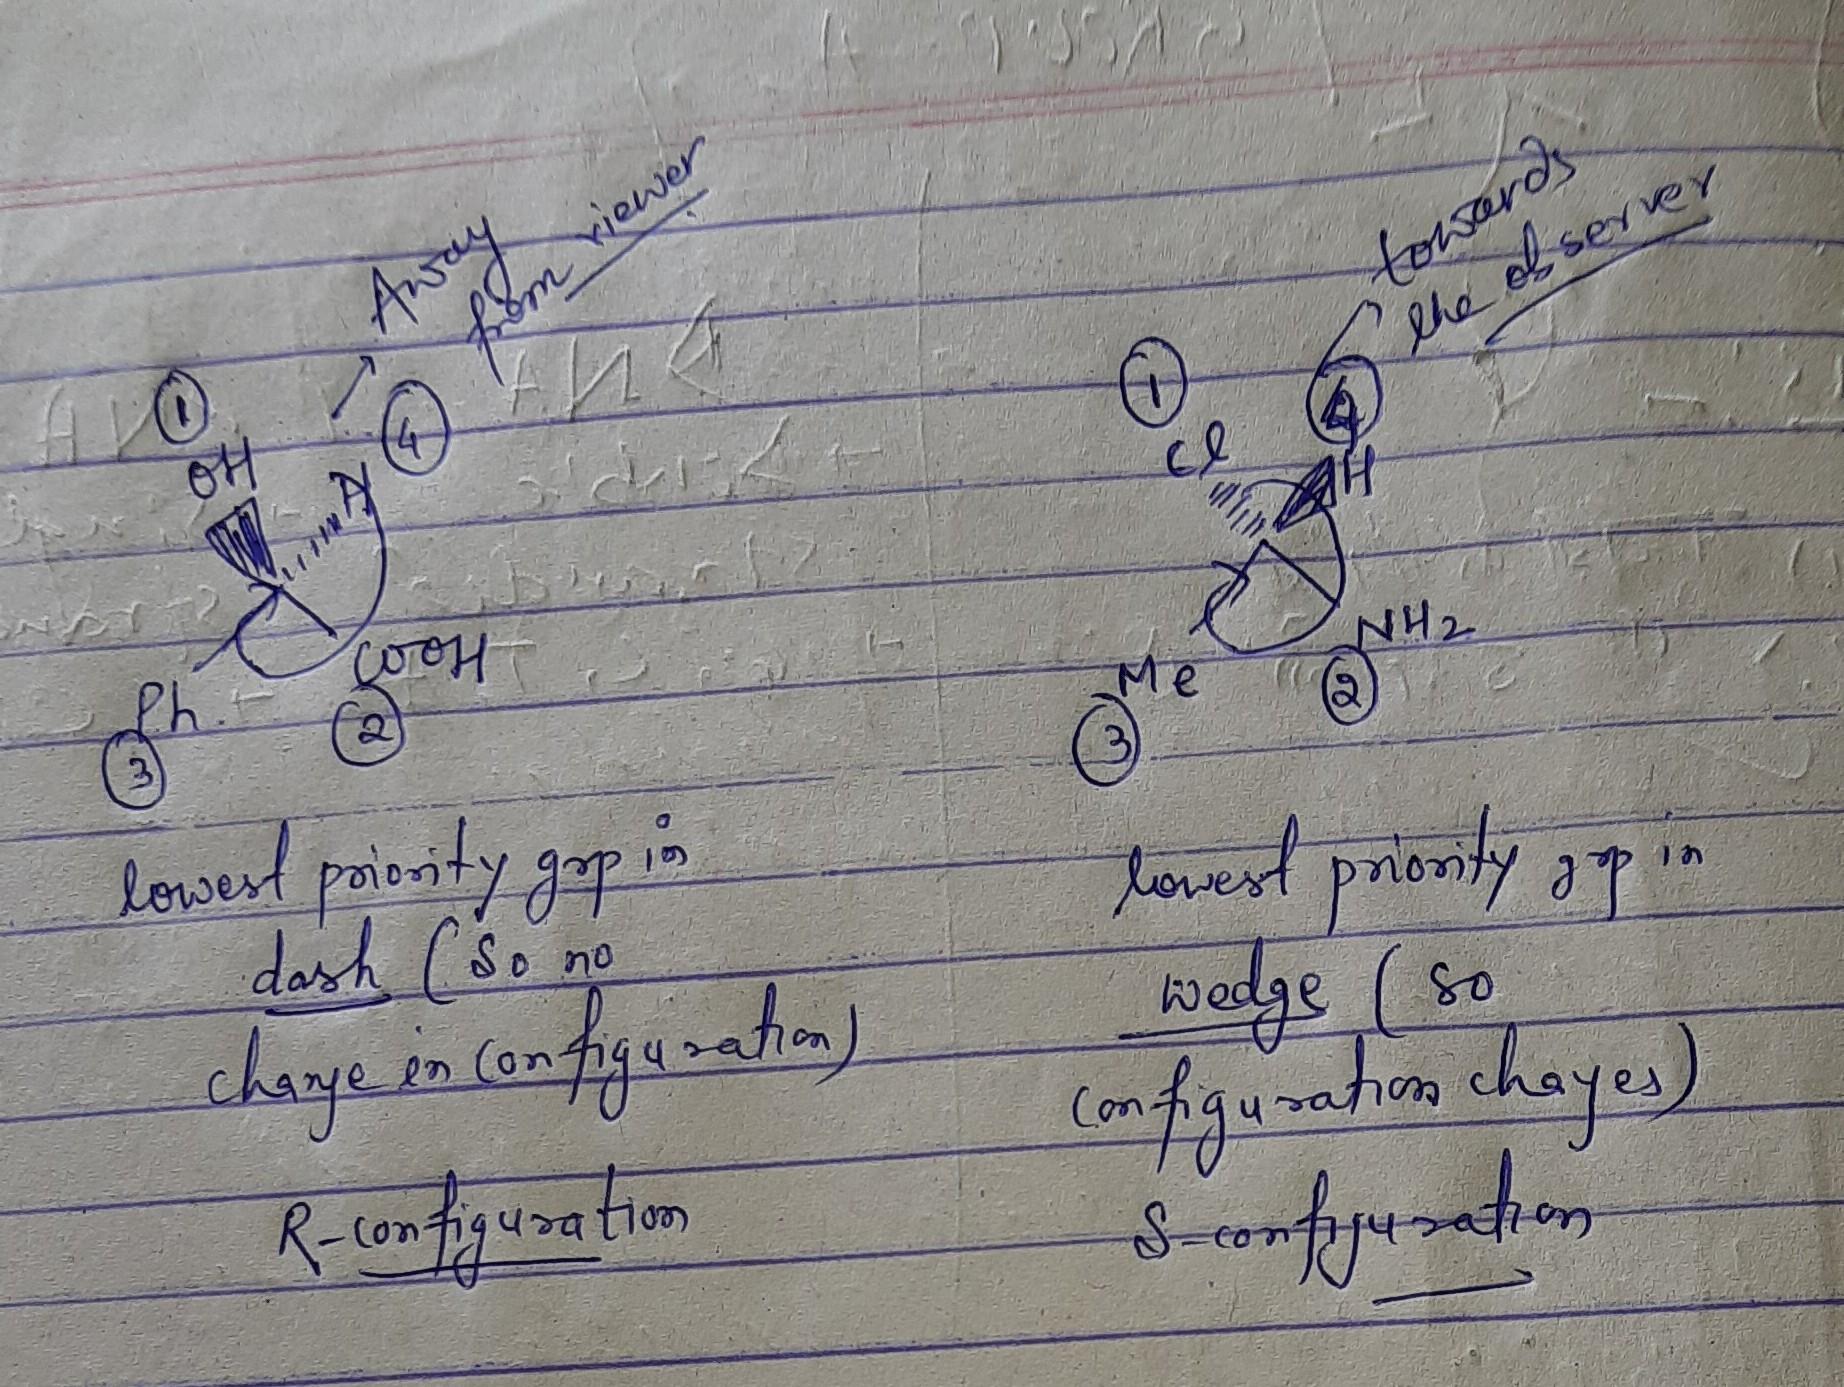 Away
from viewer
1
OH
4
H
Ph
COOH
3
2
lowest priority grp in
dash (So no
change in configuration)
R-configuration
towards
the observer
1
Cl
4
H
NH2
Me
2
3
lowest priority grp in
wedge (so
configuration chayes)
S-configuration